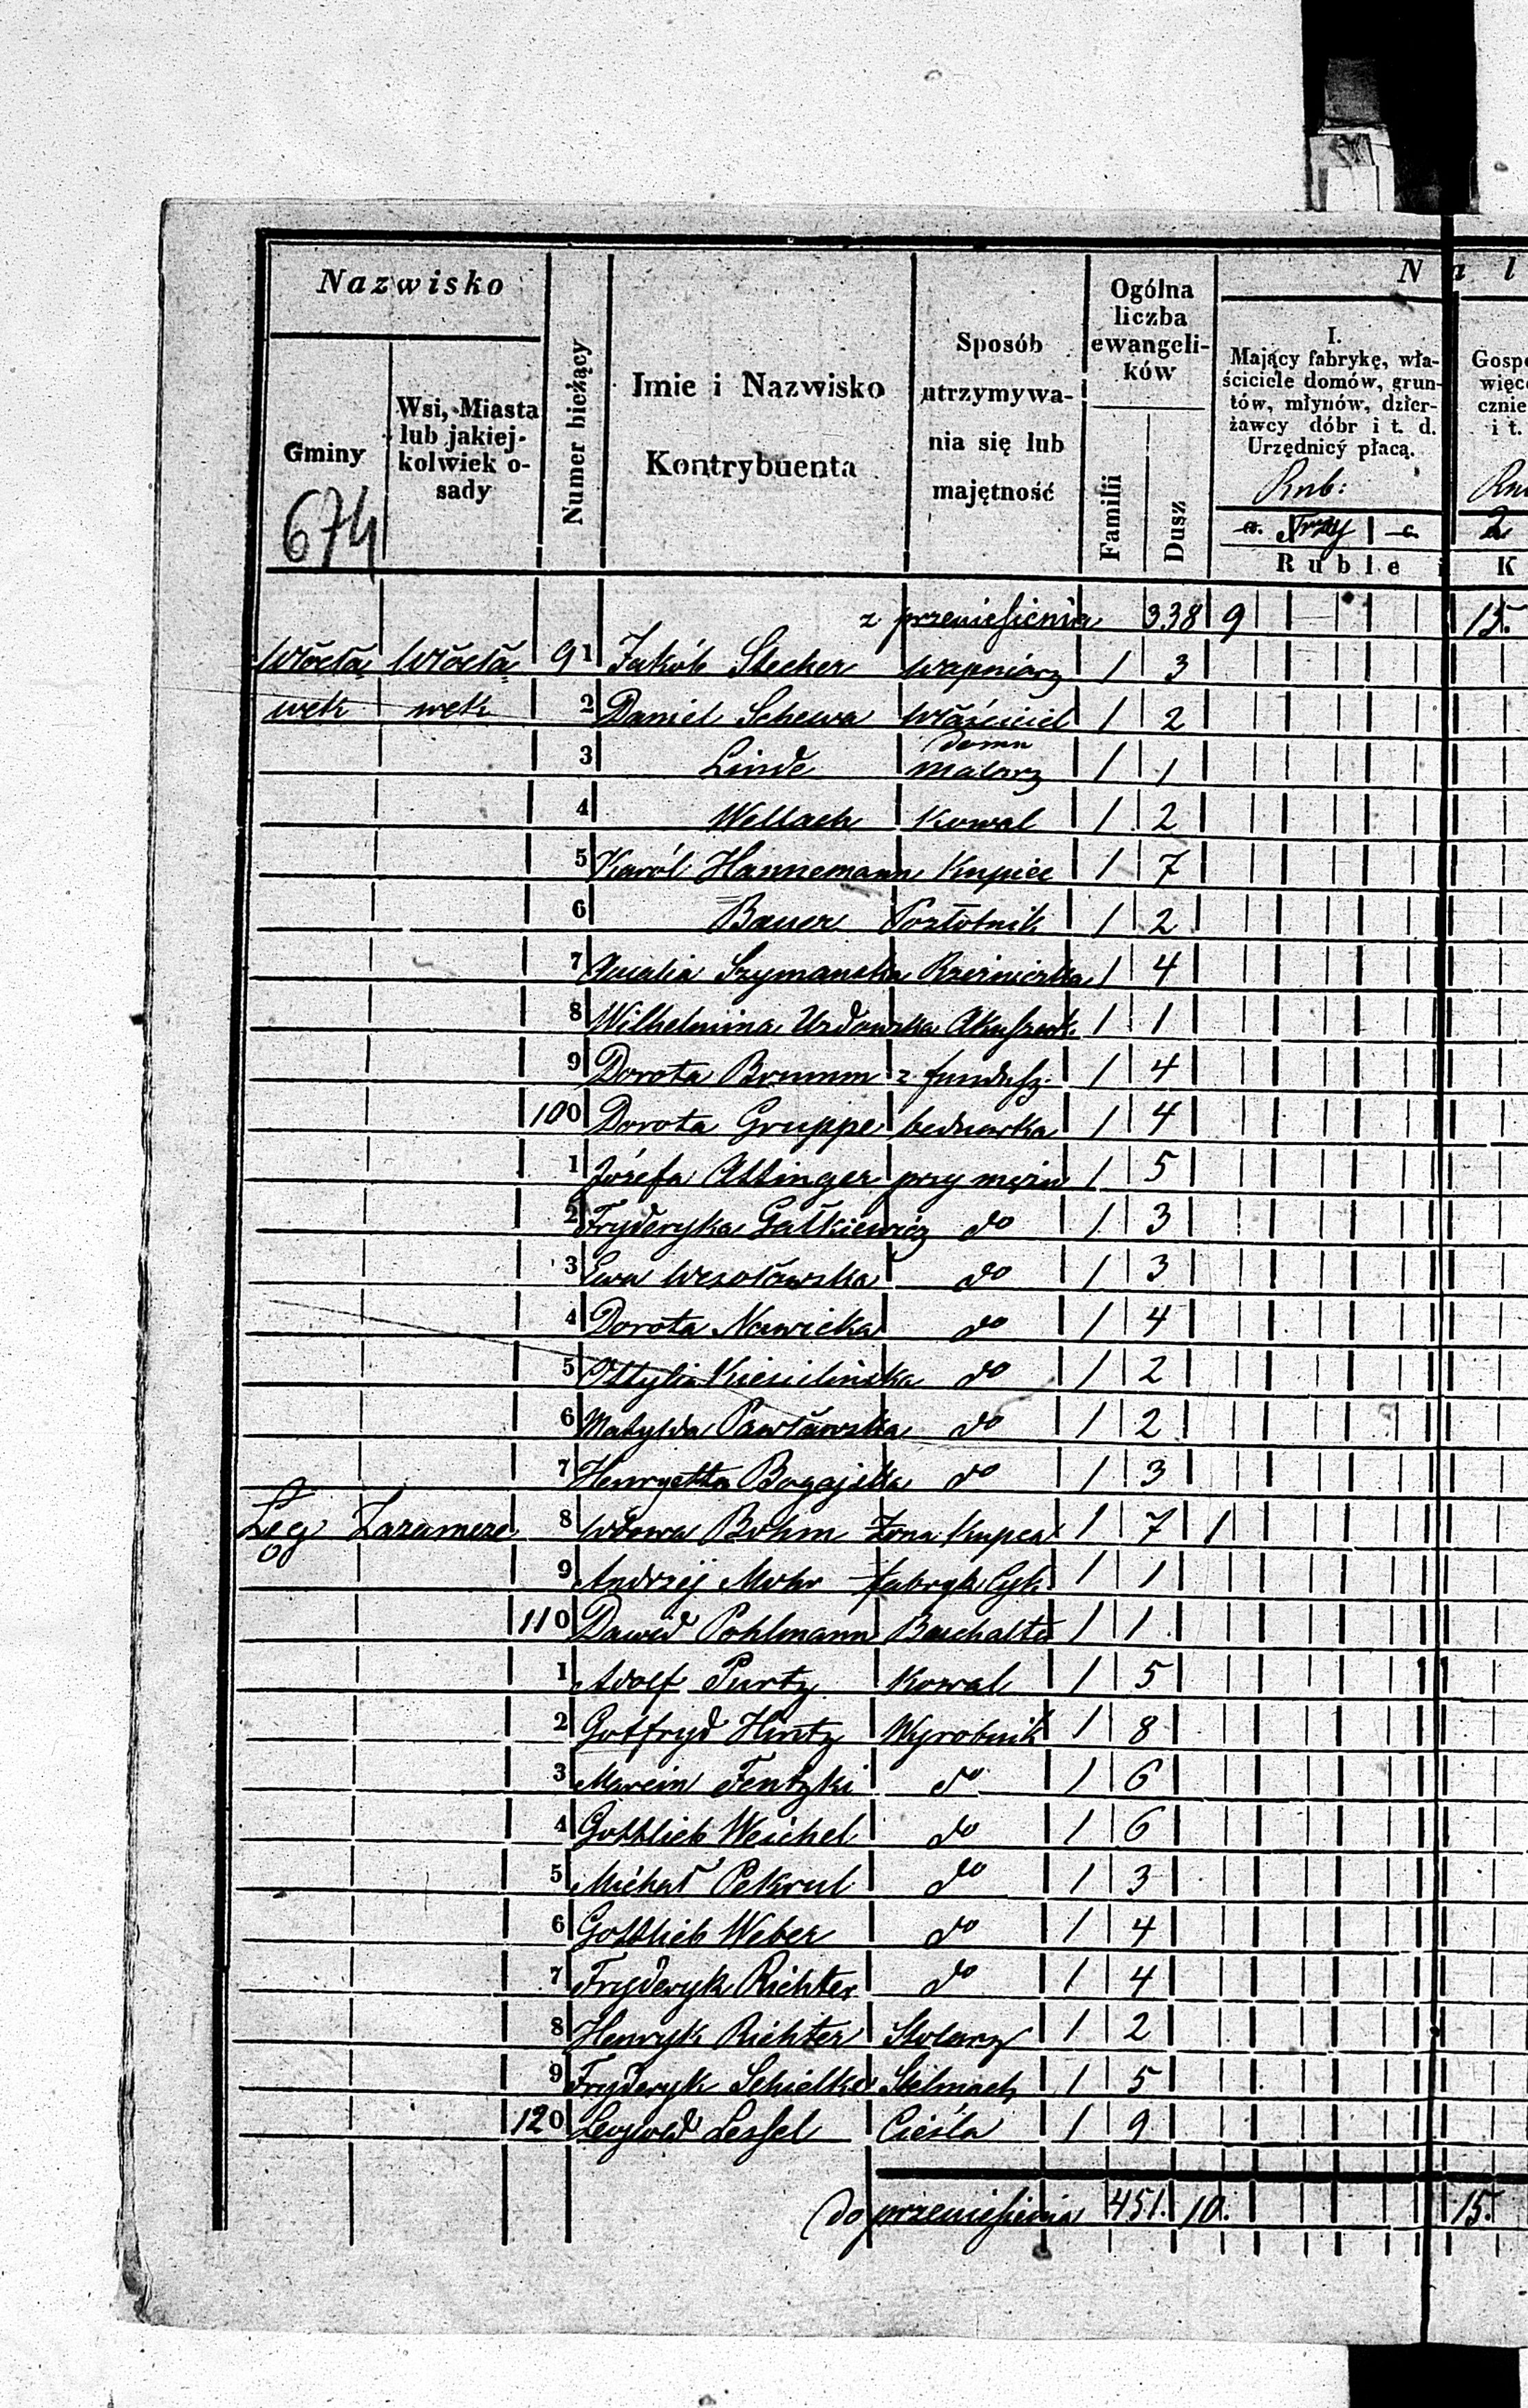 Nazwisko
Gminy
Wsi, Miasta
lub jakiej-
kolwiek o-
sady
Numer bieżący
Imie i Nazwisko
Kontrybuenta
Sposób
utrzymywa-
nia się lub
majętność
Ogólna
liczba
ewangeli-
ków
Familii
Dusz
N a l
I.
Mający fabrykę, wła-
ściciele domów, grun-
tów, młynów, dzier-
żawcy dóbr i t. d.
Urzędnicy płacą.
Rub:
a. Trzy c
Ruble i K
Gospo
więce
cznie
i t.
2
674
z przeniesienia 338 9 15.
Włocła= Włocła= 91 Jakób Stecher wapniarz 1 3
wek wek 2 Daniel Schewa Właściciel 1 2
domu
3 Linde Malarz 1 1
4 Wellach Kowal 1 2
5 Karól Hannemann Kupiec 1 7
6 Bauer Pozłotnik 1 2
7 Amalia Szymanska Rzeźniczka 1 4
8 Wilhelmina Uzdowska Akuszerk. 1 1
9 Dorota Brumm z fundusz. 1 4
100 Dorota Gruppe bednarka 1 4
1 Józefa Attinger przy mężu 1 5
2 Fryderyka Gałkiewicz do 1 3
3 Ewa Wesołowska do 1 3
4 Dorota Nowicka do 1 4
5 Ottylia do 1 2
6 Matylda Pawłowska do 1 2
7 Henryetta Bogajska do 1 3
Łęg Zazamcze 8 Wdowa Bohm Żona Kupca 1 7 1
9 Andrzej Mohr fabryk Cyk 1 1
110 Dawid Pohlmann Buchalter 1 1
1 Adolf Purtz Kowal 1 5
2 Gotfryd Hintz Wyrobnik 1 8
3 Marcin Fentzki do 1 6
4 Gottlieb Weichel do 1 6
5 Michał Pekrul do 1 3
6 Gottlieb Weber do 1 4
7 Fryderyk Richter do 1 4
8 Henryk Richter Stolarz 1 2
9 Fryderyk Schielke Stelmach 1 5
120 Leopold Lessel Cieśla 1 9
do przeniesienia 451. 10. 15.